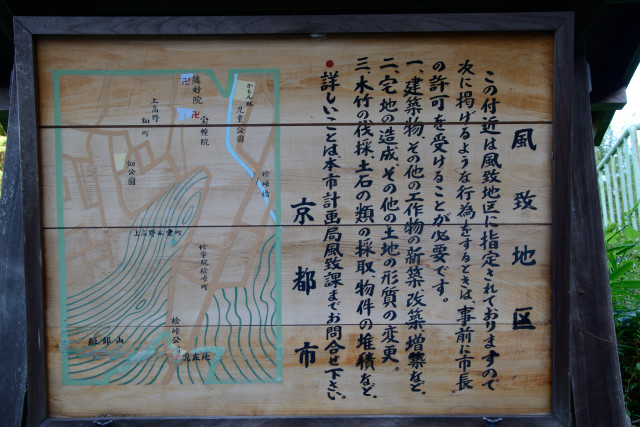 風致地区
この付近は風致地区に指定されておりますので
次に掲げるような行為をするときは、事前に市長
の許可を受けることが必要です。
一、建築物、その他の工作物の新築、改築、増築など。
二、宅地の造成、その他の土地の形質の変更。
三、木竹の伐採、土石の類の採取、物件の堆積など。
●詳しいことは、本市計画局風致課までお問合せ下さい。
京都市
児童公園
宝幢院
上高野
畑町
畑公園
現在地